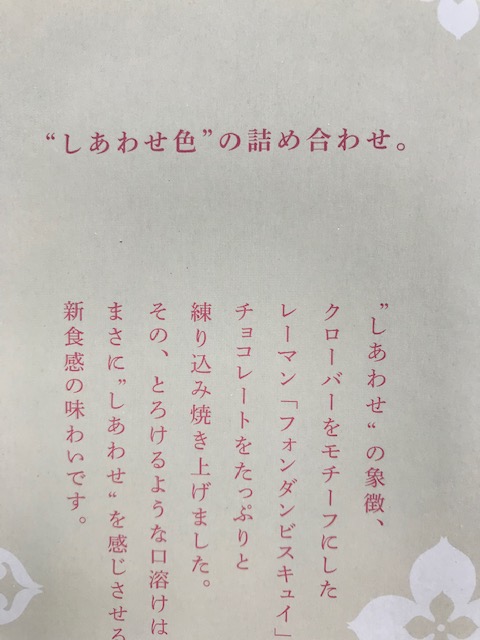 “しあわせ色”の詰め合わせ。
”しあわせ“の象徴、
クローバーをモチーフにした
レーマン「フォンダンビスキュイ」
チョコレートをたっぷりと
練り込み焼き上げました。
その、とろけるような口溶けは
まさに”しあわせ“を感じさせる
新食感の味わいです。